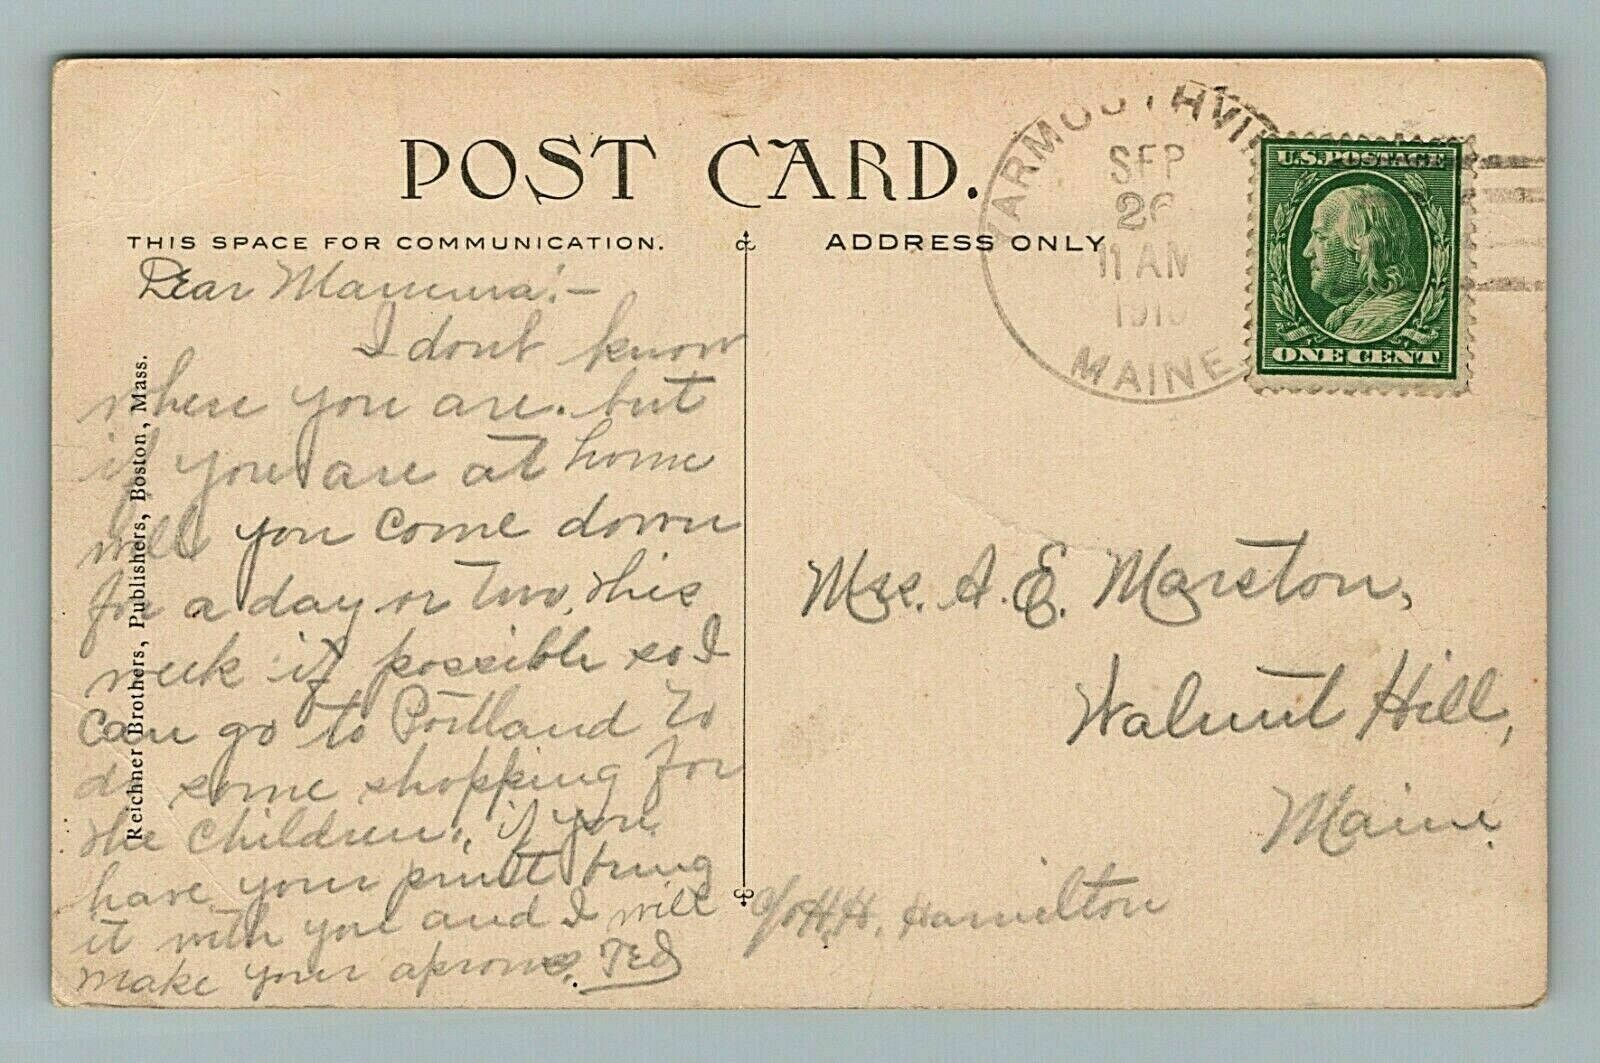 POST CARD.
THIS SPACE FOR COMMUNICATION.
ADDRESS ONLY
YARMOUTHVI
SEP
26
11 AM
191
MAINE
U.S. POSTAGE
ONE CENT
Dear Mamma:-
I dont know
where you are. but
if you are at home
will you come down
for a day or two, this
week if possible so I
can go to Portland to
do some shopping for
the children, if you
have your print bring
it with you and I will
make your aprons. Ted
Reichner Brothers, Publishers, Boston, Mass.
Mrs. A. E. Marston,
Walnut Hill,
Maine.
c/o H.H. Hamilton